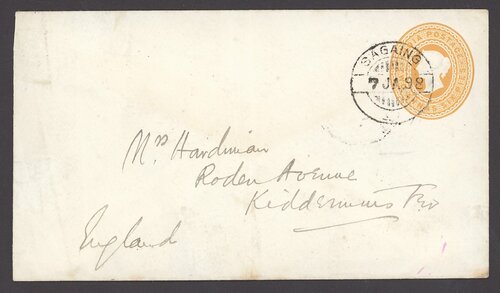 INDIA POSTAGE
SAGAING
7 JA 98
Mrs Hardman
Roden Avenue
Kidderminster
England